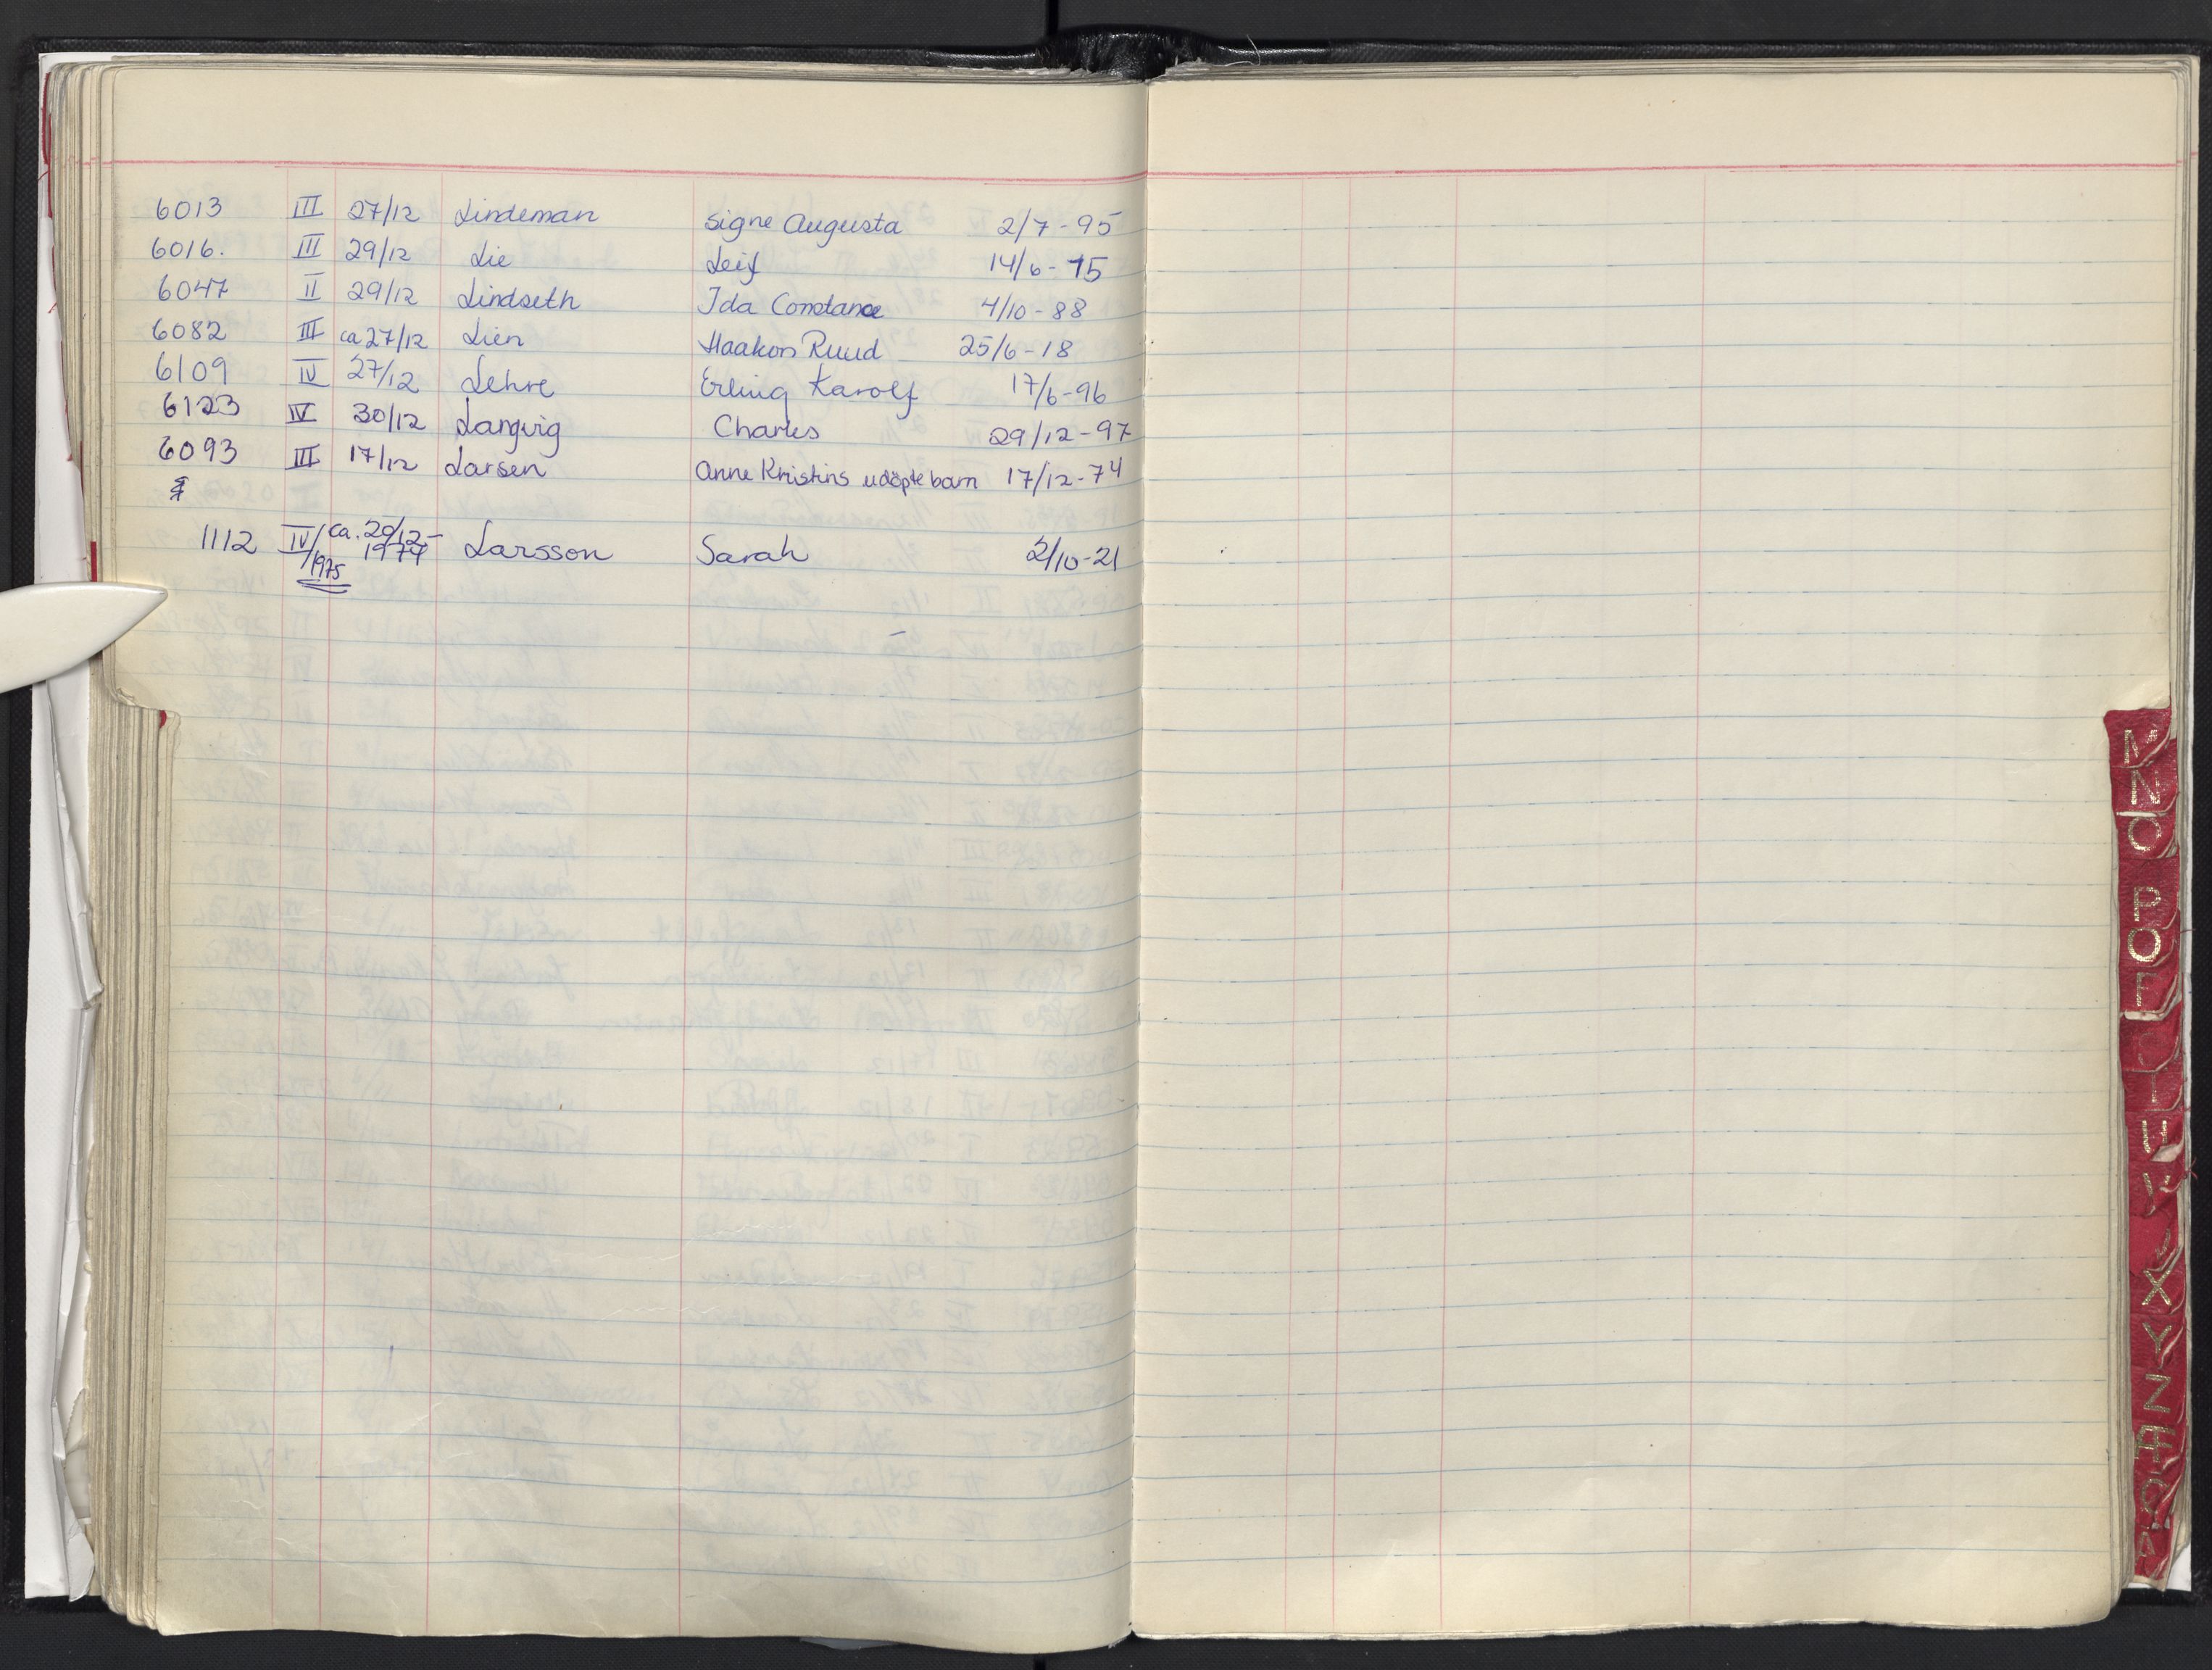 6013 III 27/12 Lindeman Signe Augusta 2/7-95
6016. III 29/12 Lie Leif 14/6-15
6047 II 29/12 Lindseth Ida Constance 4/10-88
6082 III ca 27/12 Lien Haakon Ruud 25/6-18
6109 IV 27/12 Lehre Erling Karolf 17/6-96
6123 IV 30/12 Langvig Charles 29/12-97
6093 III 17/12 Larsen Anne Kristins udöpte barn 17/12-74
1112 IV/1975 ca. 20/12-1974 Larsson Sarah 2/10-21
M
N
O
P
Q
U
V
X
Y
Z